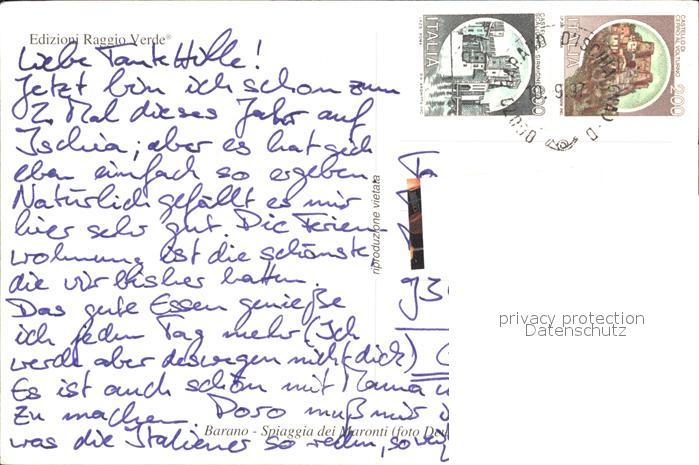 Edizioni Raggio Verde®
Liebe Tante Hilke!
Jetzt bin ich schon zum
2. Mal dieses Jahr auf
Ischia; aber es hat sich
eben einfach so ergeben.
Natürlich gefällt es mir
hier sehr gut. Die Ferien-
wohnung ist die schönste
die wir bisher hatten.
Das gute Essen genieße
ich jeden Tag mehr (Ich
werde aber deswegen nicht dick)
Es ist auch schön mit Mama u
zu machen. Doro muß mir
was die Italiener so reden,
Barano - Spiaggia dei Maronti (foto
riproduzione vietata
ITALIA
ITALIA
200
CASTELLO DI
CERRO AL VOLTURNO
privacy protection
Datenschutz